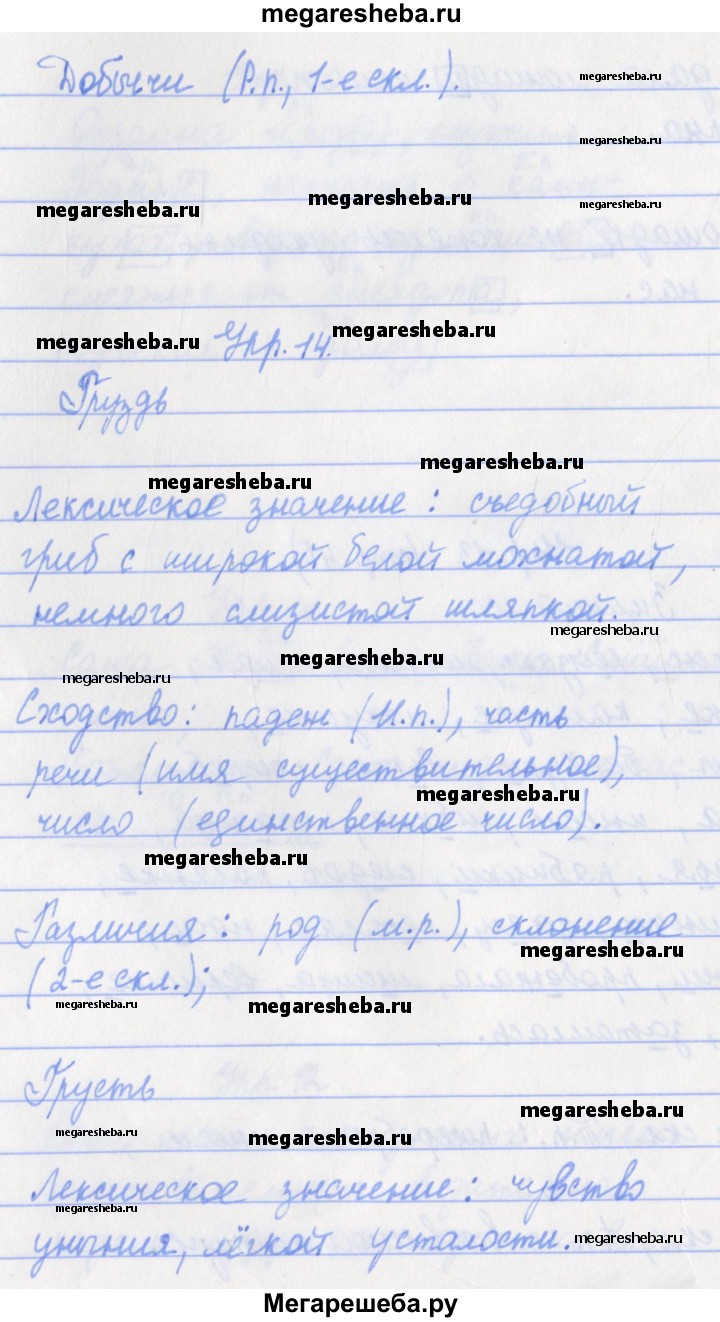 megaresheba.ru
Добычи (Р.п., 1-е скл.).
megaresheba.ru
megaresheba.ru
megaresheba.ru
megaresheba.ru
megaresheba.ru
megaresheba.ru Упр. 14. megaresheba.ru
Груздь
megaresheba.ru
megaresheba.ru
Лексическое значение: съедобный
гриб с широкой белой мохнатой,
немного слизистой шляпкой.
megaresheba.ru
megaresheba.ru
megaresheba.ru
Сходство: падеж (И.п.), часть
речи (имя существительное),
megaresheba.ru
число (единственное число).
megaresheba.ru
Различия: род (м.р.), склонение
megaresheba.ru
(2-е скл.);
megaresheba.ru
megaresheba.ru
Грусть
megaresheba.ru
megaresheba.ru
megaresheba.ru
Лексическое значение: чувство
megaresheba.ru
уныния, лёгкой усталости.
megaresheba.ru
Мегарешеба.ру